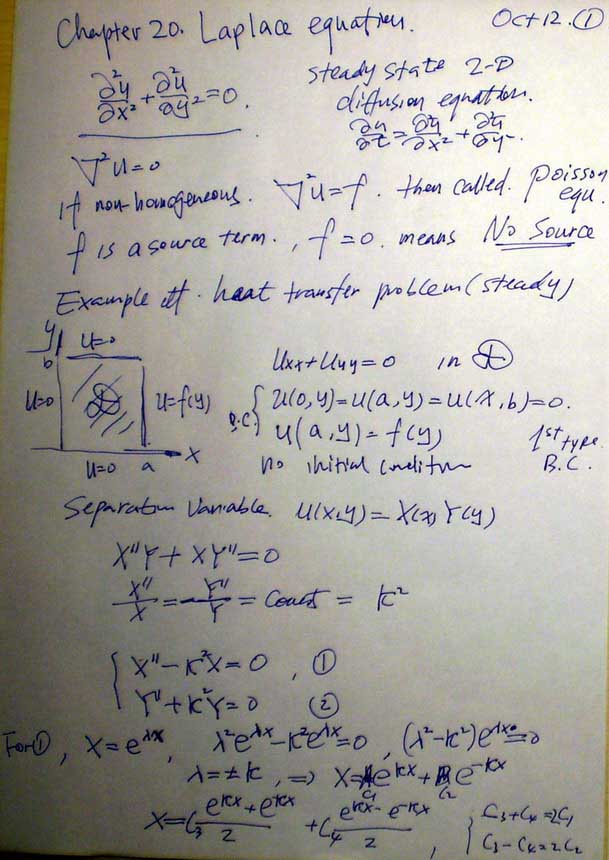 Chapter 20. Laplace equation. Oct 12. ①
∂²u/∂x² + ∂²u/∂y² = 0.
steady state 2-D
diffusion equation.
∂u/∂t = ∂²u/∂x² + ∂²u/∂y².
∇²u=0
If non-homogeneous. ∇²u=f. then called. Poisson equ.
f is a source term., f=0. means No Source
Example heat transfer problem (steady)
y
b
u=0
u=0
u=f(y)
u=0
a
x
D
Uxx+Uyy=0 in D
B.C. { U(0,y)=U(a,y)=U(x,b)=0.
U(a,y)=f(y)
1st type B.C.
no initial condition
Separation Variable. U(x,y)=X(x)Y(y)
X''Y + XY''=0
X''/X = -Y''/Y = Const = K²
{ X''-K²X=0, ①
Y''+K²Y=0 ②
For ①, X=e^{λx}, λ²e^{λx}-K²e^{λx}=0, (λ²-K²)e^{λx}=0
λ=±K, ⇒ X=C₁e^{Kx}+C₂e^{-Kx}
X=C₃ (e^{Kx}+e^{Kx})/2 + C₄ (e^{Kx}-e^{-Kx})/2, { C₃+C₄=2C₁
C₃-C₄=2C₂